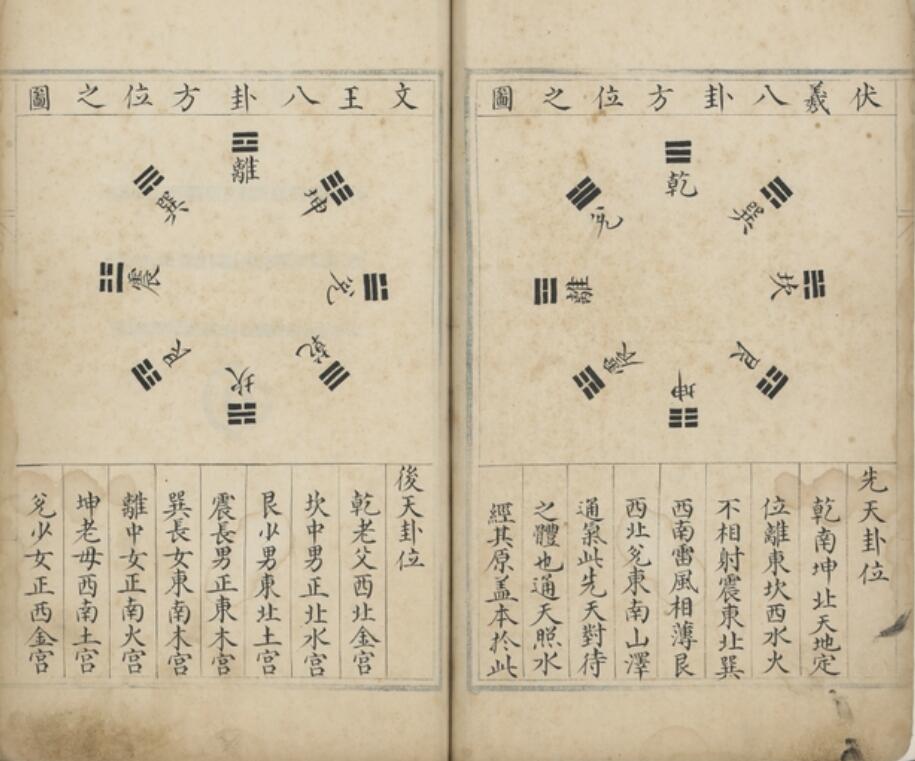 伏羲八卦方位之圖
乾
兌
離
震
巽
坎
艮
坤
先天卦位
乾南坤北天地定
位離東坎西水火
不相射震東北巽
西南雷風相薄艮
西北兌東南山澤
通氣此先天對待
之體也通天照水
經其原盖本於此
文王八卦方位之圖
離
坤
兌
乾
坎
艮
震
巽
後天卦位
乾老父西北金宮
坎中男正北水宮
艮少男東北土宮
震長男正東木宮
巽長女東南木宮
離中女正南火宮
坤老母西南土宮
兌少女正西金宮